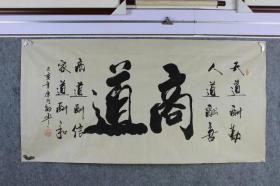 天道酬勤
人道酬善
商道
商道酬信
家道酬和